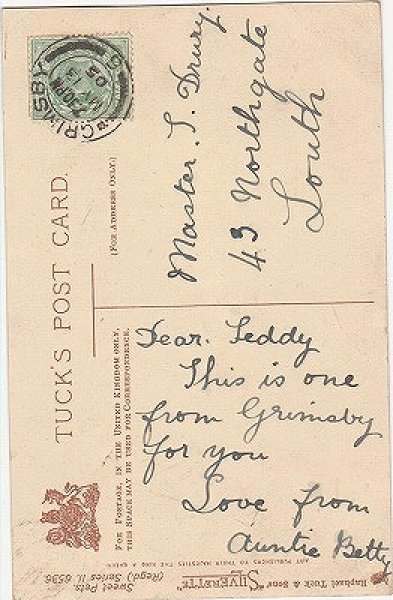 TUCK'S POST CARD.
(FOR ADDRESS ONLY.)
FOR POSTAGE, IN THE UNITED KINGDOM ONLY,
THIS SPACE MAY BE USED FOR CORRESPONDENCE.
GRIMSBY
7.30PM
MY 13
05
Master. T. Drury.
43 Northgate
Louth
Dear. Teddy
This is one
from Grimsby
for you
Love from
Auntie Betty
Raphael Tuck & Sons' "SILVERETTE"
ART PUBLISHERS TO THEIR MAJESTIES THE KING & QUEEN
Sweet Pets.
(Regd.) Series II. 6536.